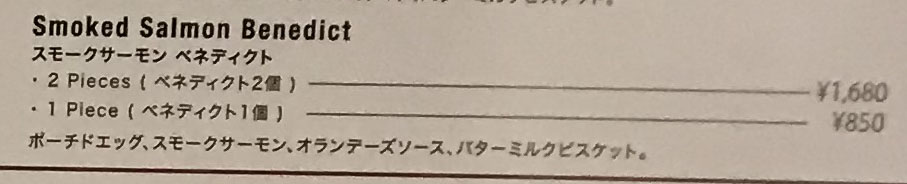 Smoked Salmon Benedict
スモークサーモン ベネディクト
・2 Pieces ( ベネディクト2個 ) ¥1,680
・1 Piece ( ベネディクト1個 ) ¥850
ポーチドエッグ、スモークサーモン、オランデーズソース、バターミルクビスケット。